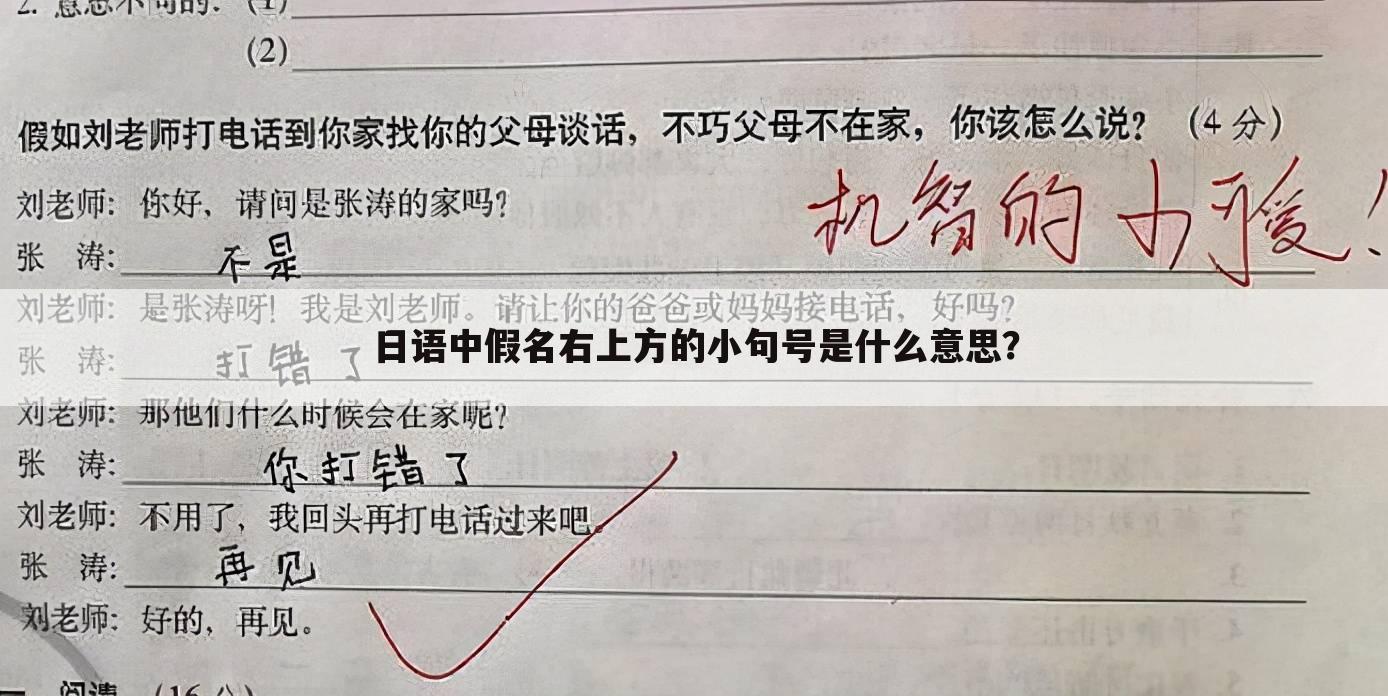 2. 意思不同的：(1)
(2)
假如刘老师打电话到你家找你的父母谈话，不巧父母不在家，你该怎么说？（4 分）
刘老师：你好，请问是张涛的家吗？
机智的小可爱！
张　涛：不是
刘老师：是张涛呀！我是刘老师。请让你的爸爸或妈妈接电话，好吗？
日语中假名右上方的小句号是什么意思?
张　涛：打错了
刘老师：那他们什么时候会在家呢？
张　涛：你打错了
刘老师：不用了，我回头再打电话过来吧。
张　涛：再见
刘老师：好的，再见。
一 阅读 (16 分)